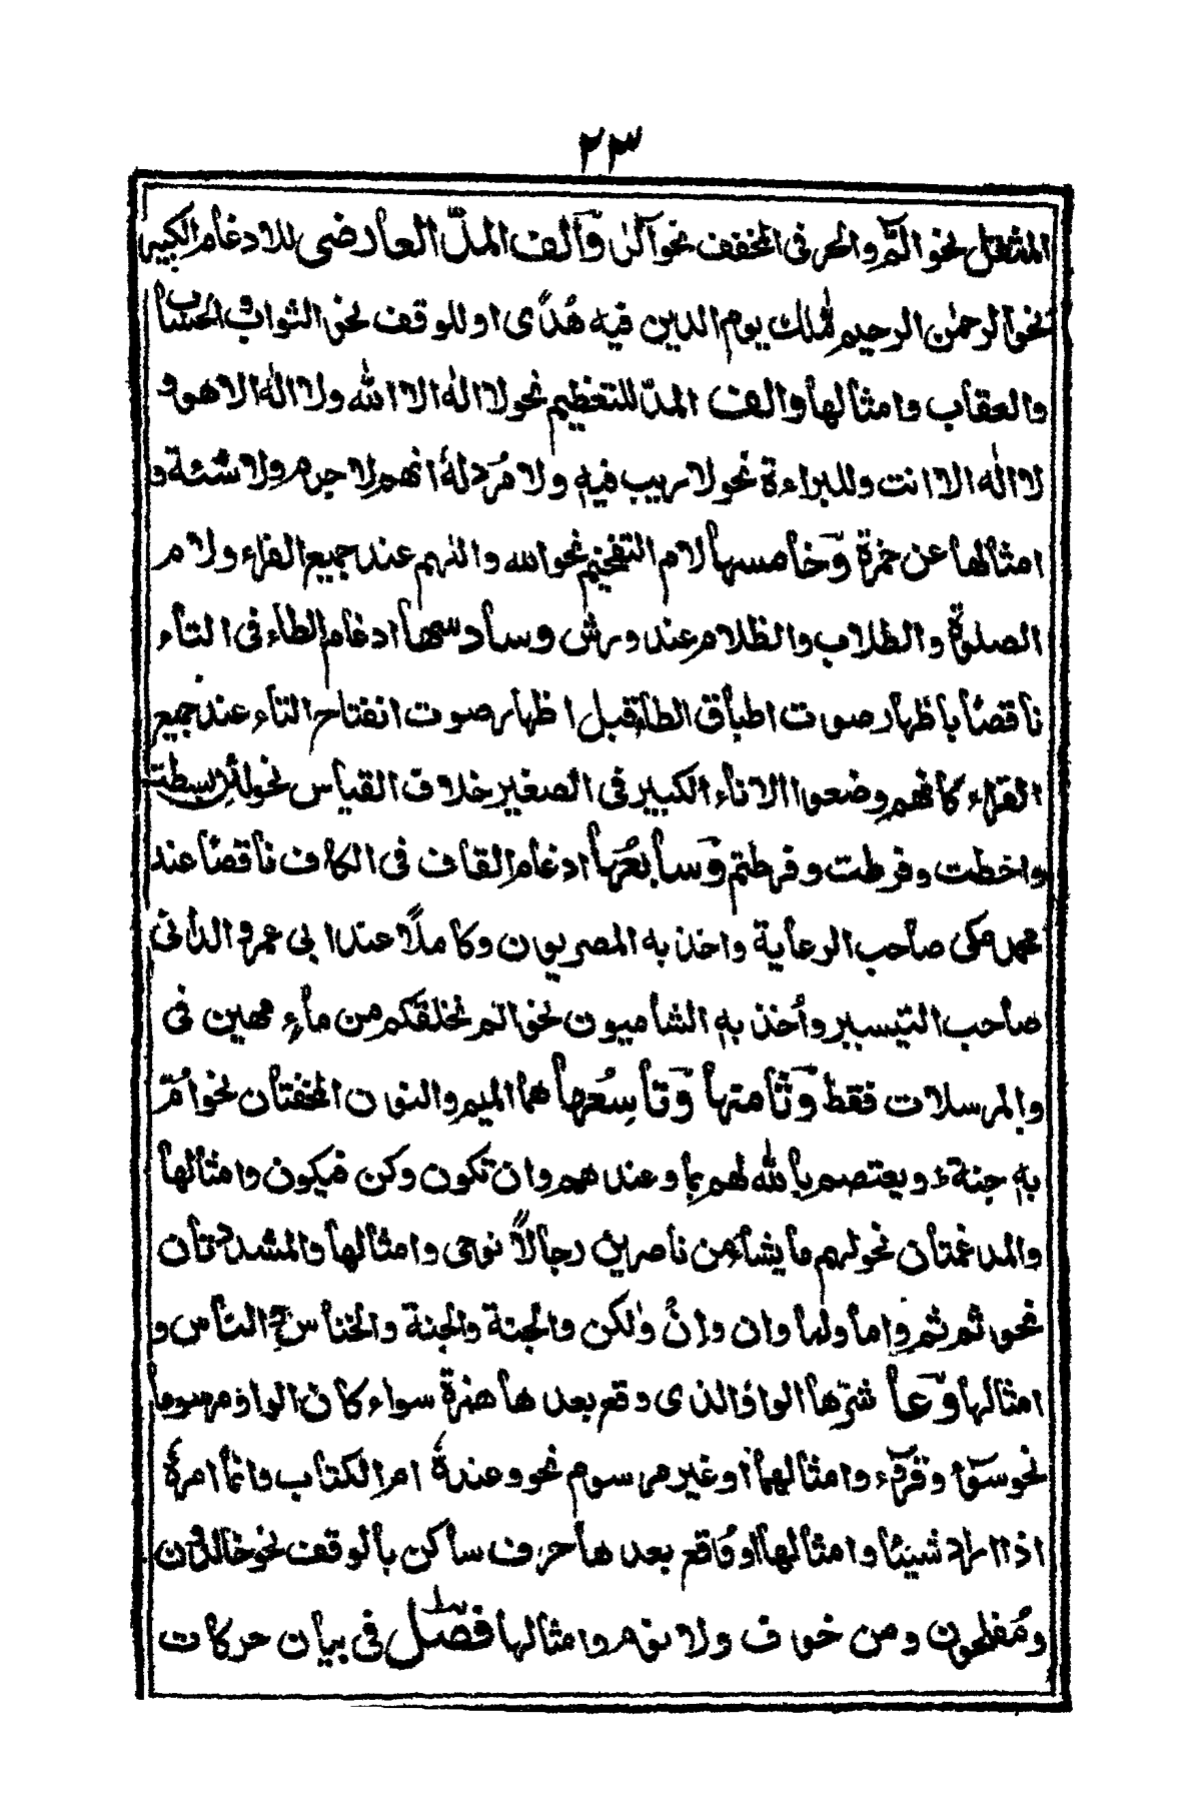 ٢٣
المثقل نحو الٓمّٓ والحرفى المخفف نحو آلرٰ وَالف المدّ العارضى للادغام الكبير
نحو الرحمٰن الرحيم مٰلك يوم الدين فيه هُدًى او للوقف نحو الثواب والحساب
والعقاب وامثالها والف المدّ للتعظيم نحو لا الٰه الا الله ولا الٰه الا هو و
لا الٰه الا انت وللبراءة نحو لا ريب فيهِ ولا مُرَدَّ لهٗ انهم لا جرم ولا شئة و
امثالها عن حمزة وَخامسها لام التفخيم نحو الله واللهم عند جميع القراء ولام
الصلوة والطلاب والظلام عند ورش وسادسها ادغام الطاء فى التاء
ناقصًا باظهار صوت اطباق الطاء قبل اظهار صوت انفتاح التاء عند جميع
القراء كانهم وضعوا الاناء الكبير فى الصغير خلاف القياس نحو لئن بسطت
واحطت وفرطت وفرطتم وَسابعُها ادغام القاف فى الكاف ناقصًا عند
محمد مكى صاحب الرعاية واخذ به المصريون وكاملًا عند ابى عمرو الدانى
صاحب التيسير وأخذ بهِ الشاميون نحو الم نخلقكم من ماءٍ مهين فى
والمرسلات فقط وَثامنها وَتاسِعُها هما الميم والنون المخفتان نحو امّ
بهِ جنة ويعتصم بالله لهم بما وعندهم وان تكون وكن فيكون وامثالها
والمدغمتان نحو لهم ما يشاء من ناصرين رجالًا نوحى وامثالها والمشددتان
نحو ثم ثُم واما ولما وان وإنَّ ولٰكن والجنة والجنة والخناس والناس و
امثالها وَعاشرها الواو الذى وقع بعدها همزة سواء كان الواو مرسومًا
نحو سوٓء وقروٓء وامثالهما او غير مرسوم نحو وعندهٗ ام الكتاب وانما امرهٗ
اذا اراد شيئًا وامثالها او وَاقع بعدها حرف ساكن بالوقف نحو خالدون
ومُفلحون ومن خوف ولا نوم وامثالها فصل فى بيان حركات